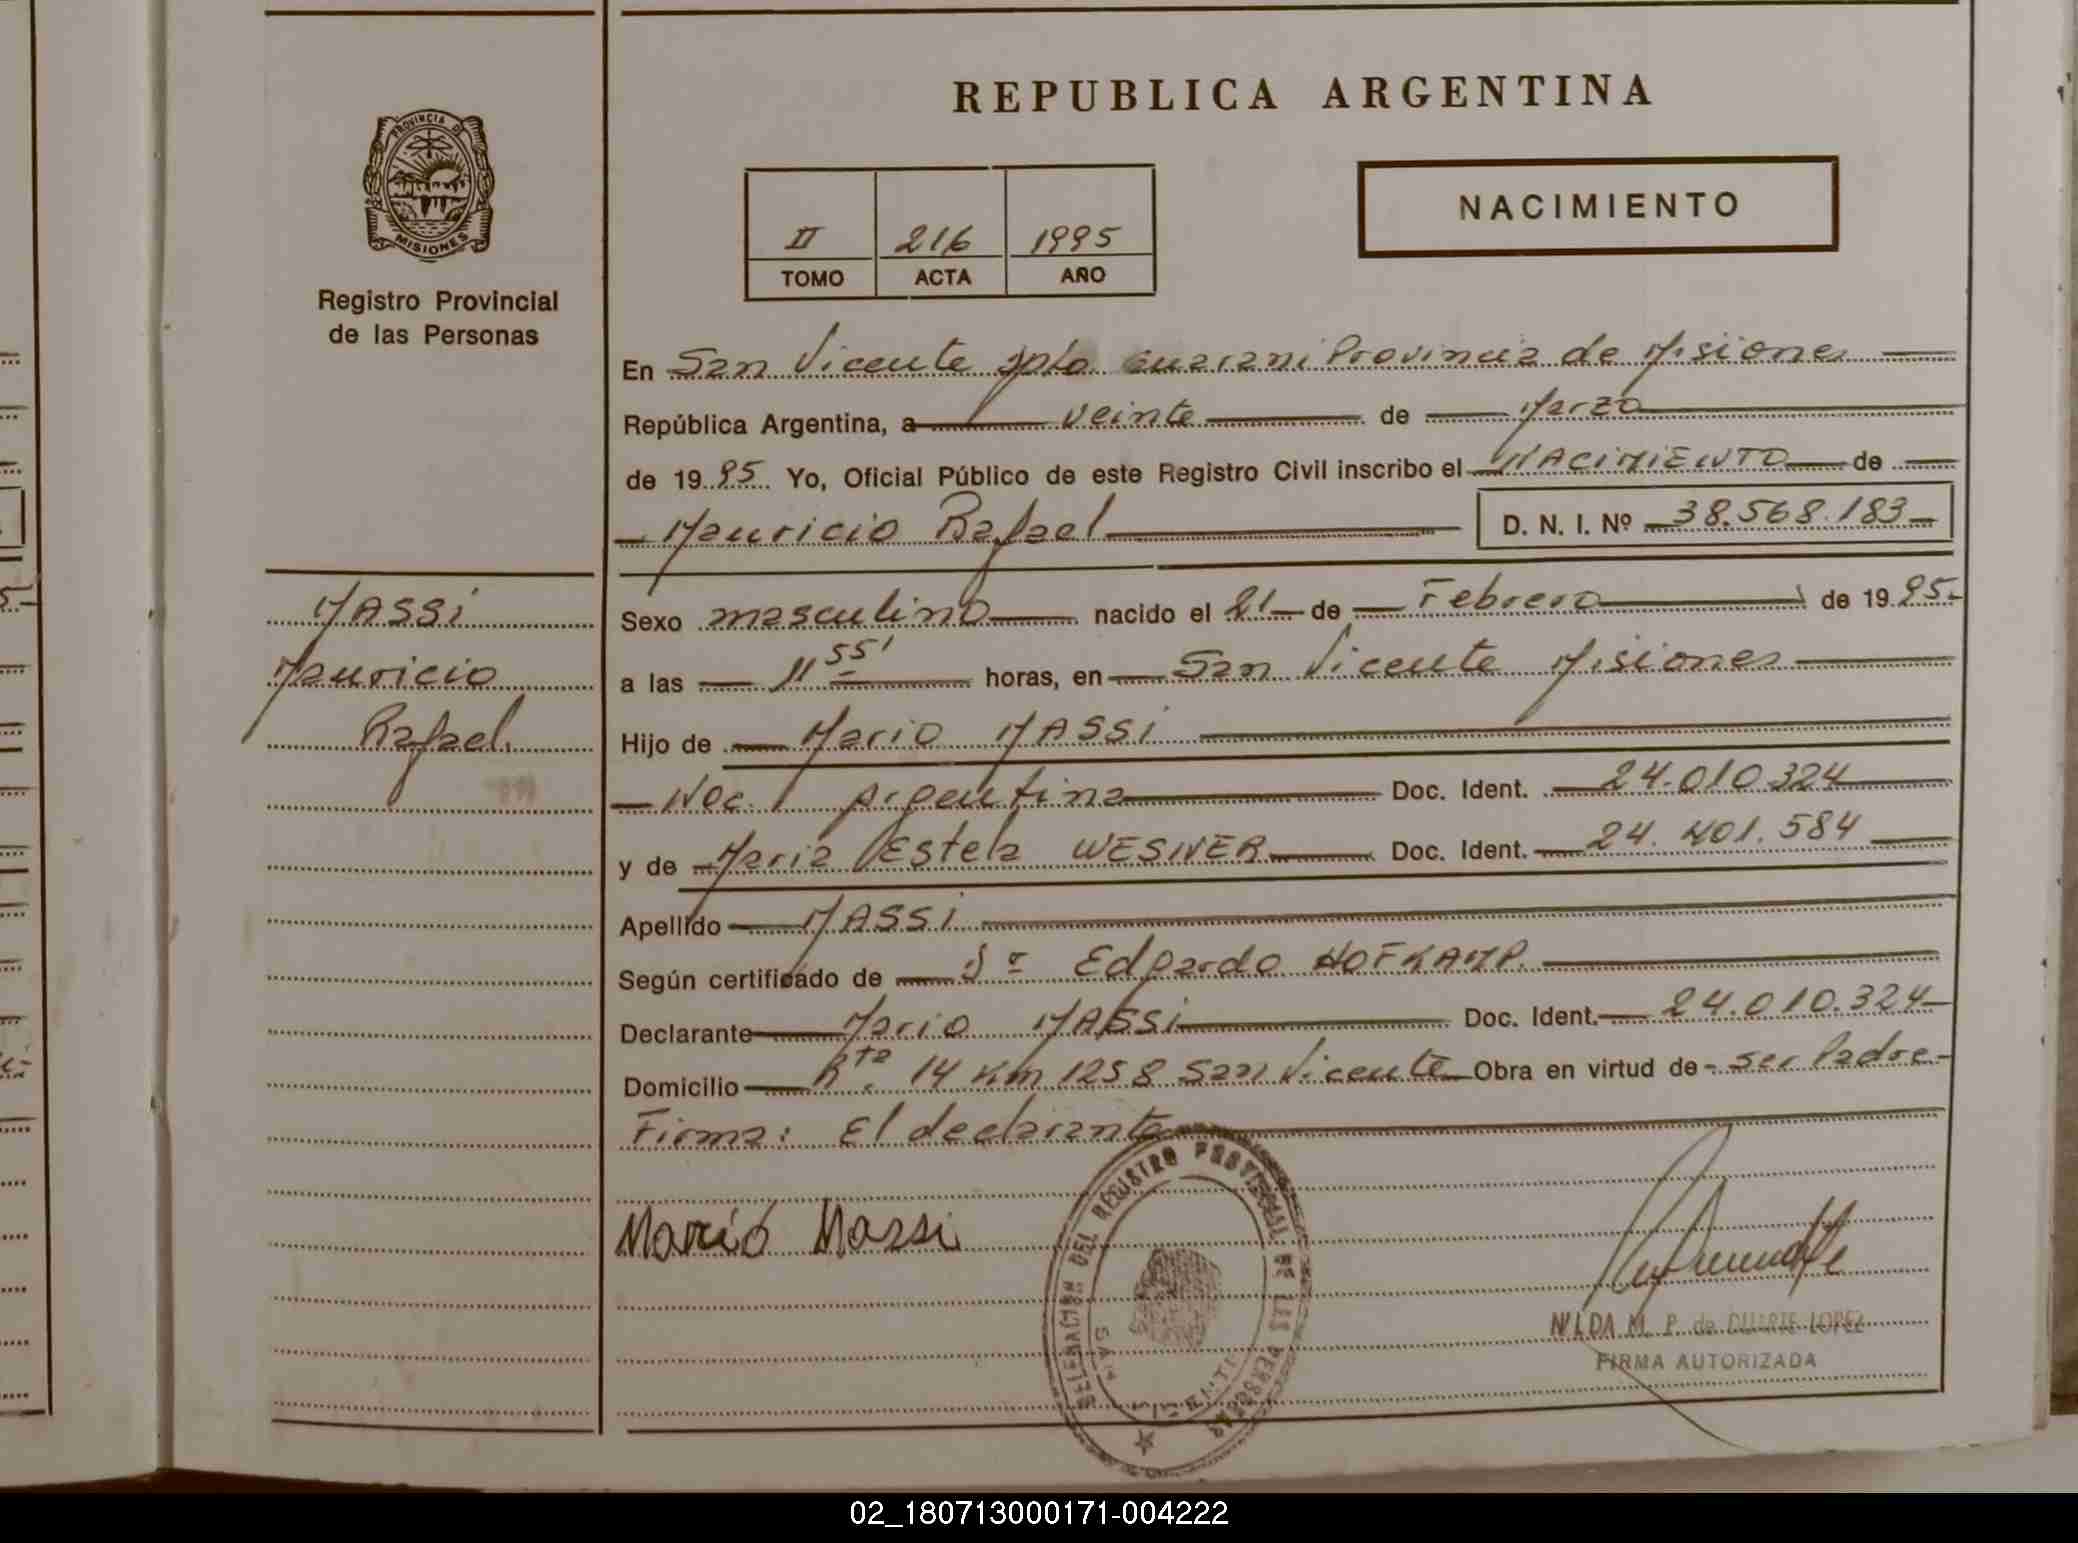 REPUBLICA ARGENTINA
PROVINCIA DE
MISIONES
Registro Provincial
de las Personas
NACIMIENTO
II 216 1995
TOMO ACTA AÑO
En San Vicente Dpto Guarani Provincia de Misiones
República Argentina, a veinte de Marzo
de 1995 Yo, Oficial Público de este Registro Civil inscribo el NACIMIENTO de
Mauricio Rafael D. N. I. Nº 38.568.183
MASSI
Mauricio
Rafael.
Sexo masculino nacido el 21 de Febrero de 1995.
a las 11 55' horas, en San Vicente Misiones
Hijo de Mario MASSI
Nac. Argentina Doc. Ident. 24.010.324
y de Maria Estela WESNER Doc. Ident. 24.401.584
Apellido MASSI
Según certificado de Dr Edgardo HOFKAMP.
Declarante Mario MASSI Doc. Ident. 24.010.324
Domicilio Rta. 14 Km 1258 San Vicente Obra en virtud de ser Padre
Firma: El declarante
Mario Massi
DELEGACION DEL REGISTRO PROVINCIAL DE LAS PERSONAS
SAN
NILDA M. P. de DUARTE LOPEZ
FIRMA AUTORIZADA
02_180713000171-004222